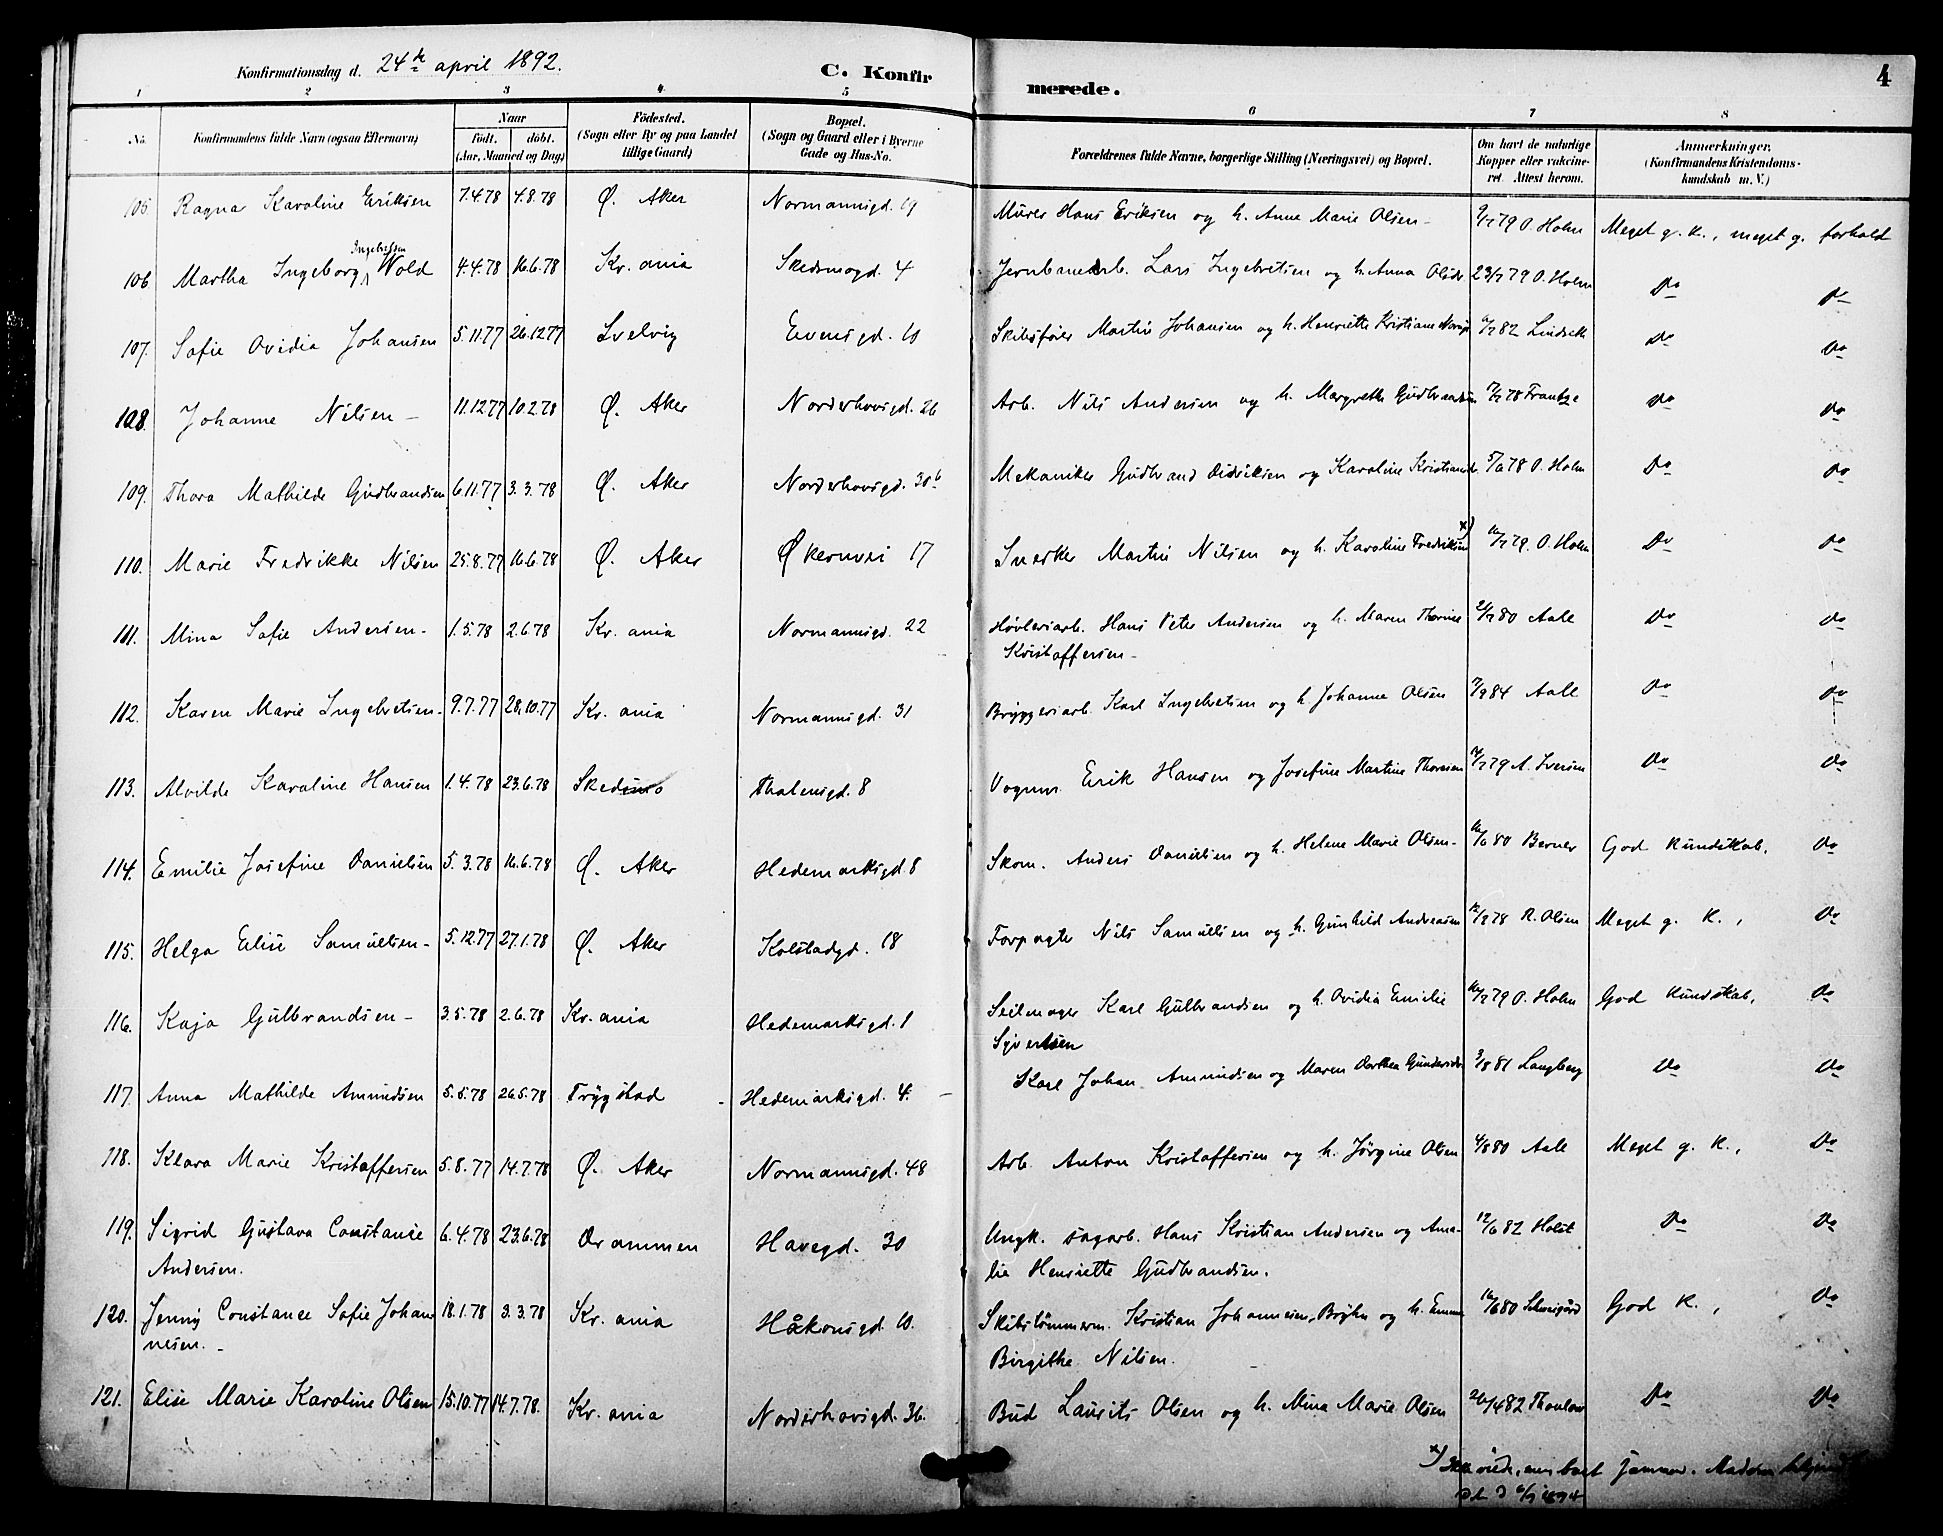 4
Konfirmationsdag d. 24de april 1892. C. Konfirmerede.
1 2 3 4 5 6 7 8
No. Konfirmandens fulde Navn (ogsaa Efternavn) Naar födt. döbt. (Aar, Maaned og Dag) Födested. (Sogn eller By og paa Landet tillige Gaard) Bopæl. (Sogn og Gaard eller i Byerne Gade og Hus-No. Forældrenes fulde Navne, borgerlige Stilling (Næringsvei) og Bopæl. Om havt de naturlige Kopper eller vakcineret. Attest herom. Anmærkninger. (Konfirmandens Kristendomskundskab m. V.)
105. Ragna Karoline Eriksen 7.4.78 4.8.78 Ø. Aker Normannsgd. 19 Murer Hans Eriksen og h. Anne Marie Olsen - 79 O. Holm Meget g. K., meget g. forhold
106 Martha Ingeborg Ingebretsen Wold 4.4.78 16.6.78 Kr.ania Skedsmogd. 4 Jernbanearb. Lars Ingebretsen og h. Anna Olsdr 79 O. Holm Do Do
107. Sofie Ovidia Johansen 5.11.77 26.12.77 Svelvig Evensgd. 10 Skibsfører Martin Johansen og h. Henriette Kristiane 82 Do Do
108. Johanne Nilsen - 11.12.77 10.2.78 Ø. Aker Norderhovsgd. 26 Arb. Nils Andersen og h. Margrethe Gudbrandsen 78 Frantze Do Do
109. Thora Mathilde Gudbrandsen 6.11.77 3.3.78 Ø. Aker Norderhovsgd. 30b Mekaniker Gudbrand Didriksen og Karoline Kristiansdr 5/6 78 O. Holm Do Do
110. Marie Fredrikke Nilsen 25.8.77 16.6.78 Ø. Aker Økernvei 17 Snerker Martin Nilsen og h. Karoline Fredriksen x) 79. O. Holm Do Do
111. Mina Sofie Andersen - 1.5.78 2.6.78 Kr.ania Normannsgd. 22 Høvleriarb. Hans Peter Andersen og h. Maren Thorine 80 Aall Do Do
Kristoffersen -
112. Karen Marie Ingebretsen - 9.7.77 28.10.77 Kr.ania Normannsgd. 31 Bryggeriarb. Karl Ingebretsen og h. Johanne Olsen 84 Aall Do Do
113. Alvilde Karoline Hansen 1.4.78 23.6.78 Skedsmo Thalensgd. 8 Vognm. Erik Hansen og Josefine Martine Thoresen 79 A. Iversen Do Do
114. Emilie Josefine Danielsen 5.3.78 16.6.78 Ø. Aker Hedemarksgd 8 Skom. Anders Danielsen og h. Helene Marie Olsen - 80 Berner God Kundskab, Do
115. Helga Elise Samuelsen - 5.12.77 27.1.78 Ø. Aker Kolstadgd. 18 Forpagter Nils Samuelsen og h. Gunhild Andreasen 78 R. Olsen Meget g. K., Do
116. Kaja Gulbrandsen - 3.5.78 2.6.78 Kr.ania Hedemarksgd. 1 Seilmager Karl Gulbrandsen og h. Ovidia Emilie 79 O. Holm God Kundskab, Do
Syvertsen
117. Anna Mathilde Amundsen 5.5.78 26.5.78 Trygstad - Hedemarksgd. 4. - Karl Johan Amundsen og Maren Dorthea Gundersdr 3/8 81 Langberg Do Do
118. Klara Marie Kristoffersen 5.8.77 14.7.78 Ø. Aker Normannsgd. 48 Arb. Anton Kristoffersen og h. Jørgine Olsen 4/8 80 Aall Meget g. K., Do
119. Sigrid Gustava Constance 6.4.78 23.6.78 Drammen Havegd. 30 Ungk. sagarb. Hans Kristian Andersen og Ama- 12/6 82 Holst Do Do
Andersen. lie Henriette Gudbrandsen.
120. Jenny Constance Sofie Johan 18.1.78 3.3.78 Kr.ania Håkonsgd. 10. Skibstømmerm. Kristian Johannesen, og h. Emma 80 God K., Do
nesen. - Birgithe Nilsen.
121. Elise Marie Karoline Olsen 15.10.77 14.7.78. Kr.ania Norderhovsgd. 36. Bud Laurits Olsen og h. Mina Marie Olsen 82 Thaulow Do Do